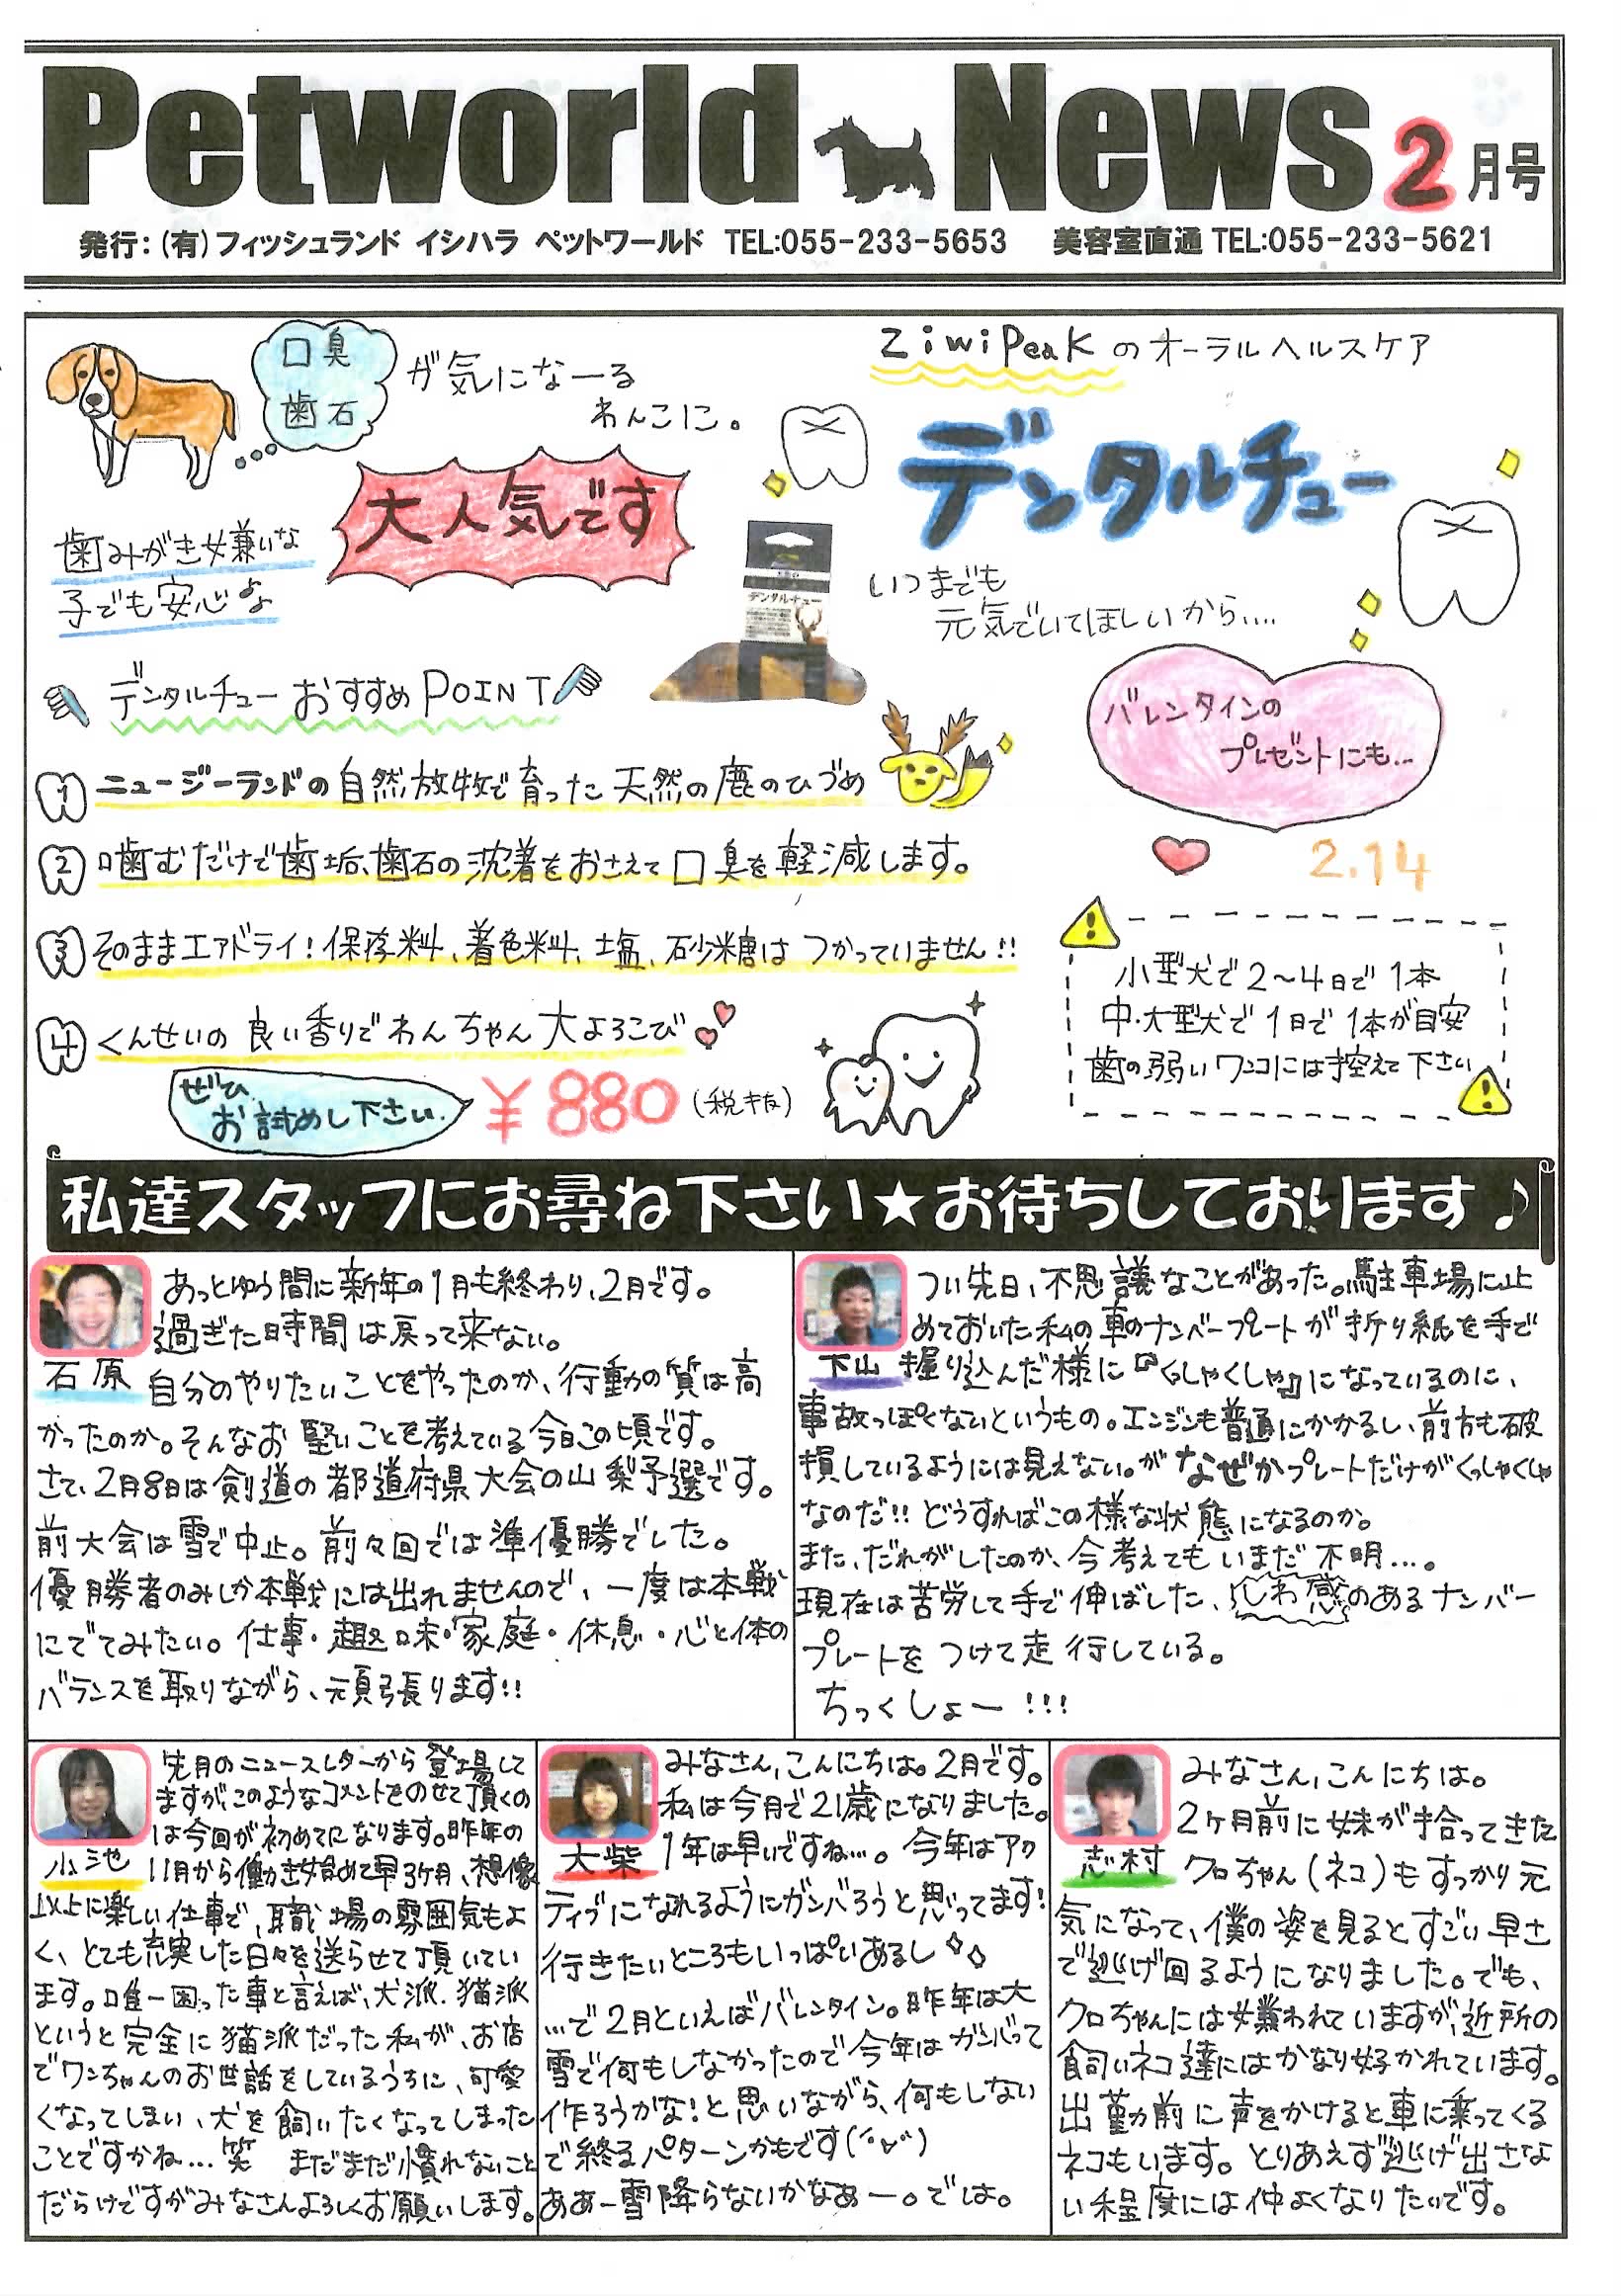 Petworld News 2月号
発行：(有)フィッシュランド イシハラ ペットワールド TEL:055-233-5653 美容室直通 TEL:055-233-5621
口臭
歯石
が気にな〜る
わんこに。
大人気です
歯みがき嫌いな
子でも安心♪
ZiwiPeaKのオーラルヘルスケア
デンタルチュー
デンタルチュー
いつまでも
元気でいてほしいから....
デンタルチューおすすめPOINT
バレンタインの
プレゼントにも...
2.14
1 ニュージーランドの自然放牧で育った天然の鹿のひづめ
2 噛むだけで歯垢、歯石の沈着をおさえて口臭を軽減します。
3 そのままエアドライ！保存料、着色料、塩、砂糖はつかっていません!!
4 くんせいの良い香りでわんちゃん大よろこび
ぜひ
お試めし下さい.
¥880(税抜)
小型犬で2〜4日で1本
中・大型犬で1日で1本が目安
歯の弱いワンコには控えて下さい
私達スタッフにお尋ね下さい★お待ちしております♪
石原
あっとゆう間に新年の1月も終わり、2月です。
過ぎた時間は戻って来ない。
自分のやりたいことをやったのか、行動の質は高
かったのか。そんなお堅いことを考えている今日この頃です。
さて、2月8日は剣道の都道府県大会の山梨予選です。
前大会は雪で中止。前々回では準優勝でした。
優勝者のみしか本戦には出れませんので、一度は本戦
にでてみたい。仕事・趣味・家庭・休息・心と体の
バランスを取りながら、頑張ります!!
下山
つい先日、不思議なことがあった。駐車場に止
めておいた私の車のナンバープレートが折り紙を手で
握り込んだ様に『くっしゃくしゃ』になっているのに、
事故っぽくないというもの。エンジンも普通にかかるし、前方も破
損しているようには見えない。がなぜかプレートだけがくっしゃくしゃ
なのだ!!どうすればこの様な状態になるのか。
また、だれがしたのか、今考えてもいまだ不明...。
現在は苦労して手で伸ばした、しわ感のあるナンバー
プレートをつけて走行している。
ちっくしょー!!!
小池
先月のニュースレターから登場して
ますが、このようなコメントをのせて頂くの
は今回が初めてになります。昨年の
11月から働き始めて早3ヶ月、想像
以上に楽しい仕事で、職場の雰囲気もよ
く、とても充実した日々を送らせて頂いてい
ます。唯一困った事と言えば、犬派.猫派
というと完全に猫派だった私が、お店
でワンちゃんのお世話をしているうちに、可愛
くなってしまい、犬を飼いたくなってしまった
ことですかね...笑 まだまだ慣れないこと
だらけですがみなさんよろしくお願いします。
大柴
みなさん,こんにちは。2月です。
私は今月で21歳になりました。
1年は早いですね...。今年はアク
ティブになれるようにガンバろうと思ってます!
行きたいところもいっぱいあるし
...で2月といえばバレンタイン。昨年は大
雪で何もしなかったので今年はガンバって
作ろうかな!と思いながら、何もしない
で終るパターンかもです(´∀`)
ああー雪降らないかなあー。では。
志村
みなさん,こんにちは。
2ヶ月前に妹が拾ってきた
クロちゃん(ネコ)もすっかり元
気になって、僕の姿を見るとすごい早さ
で逃げ回るようになりました。でも、
クロちゃんには嫌われていますが、近所の
飼いネコ達にはかなり好かれています。
出勤前に声をかけると車に乗ってくる
ネコもいます。とりあえず逃げ出さな
い程度には仲よくなりたいです。